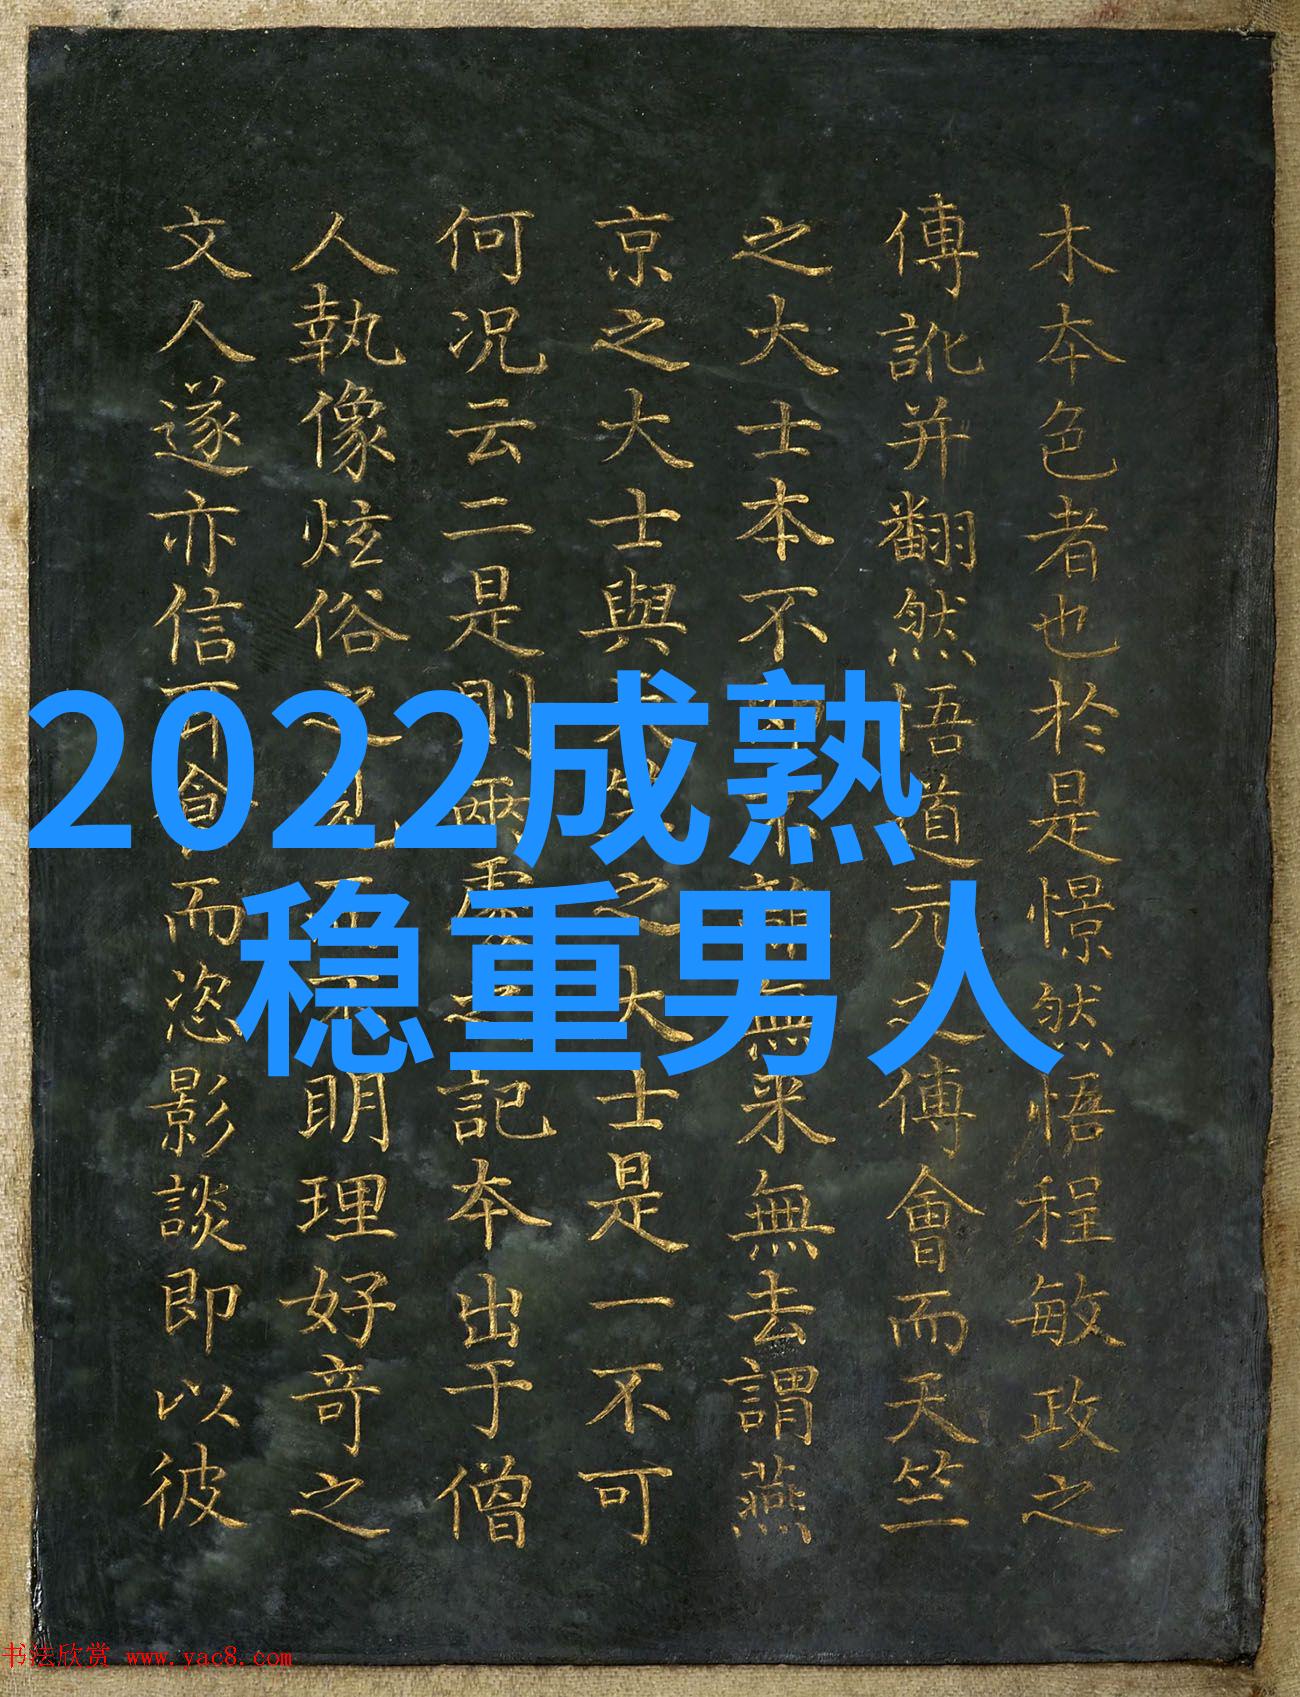 木夲色者也於是憬然悟程敏政之
傳訛并翻然悟道元之傅會而天竺
之大士本不無来無去謂燕
京之大士與天竺之大士是一不可
何况云二是則兩處之記夲出于僧
人執像炫俗之見而不明理好奇之
文人遂亦信而恣影談即以彼
2022成熟
稳重男人
书法欣赏 www.yac8.com